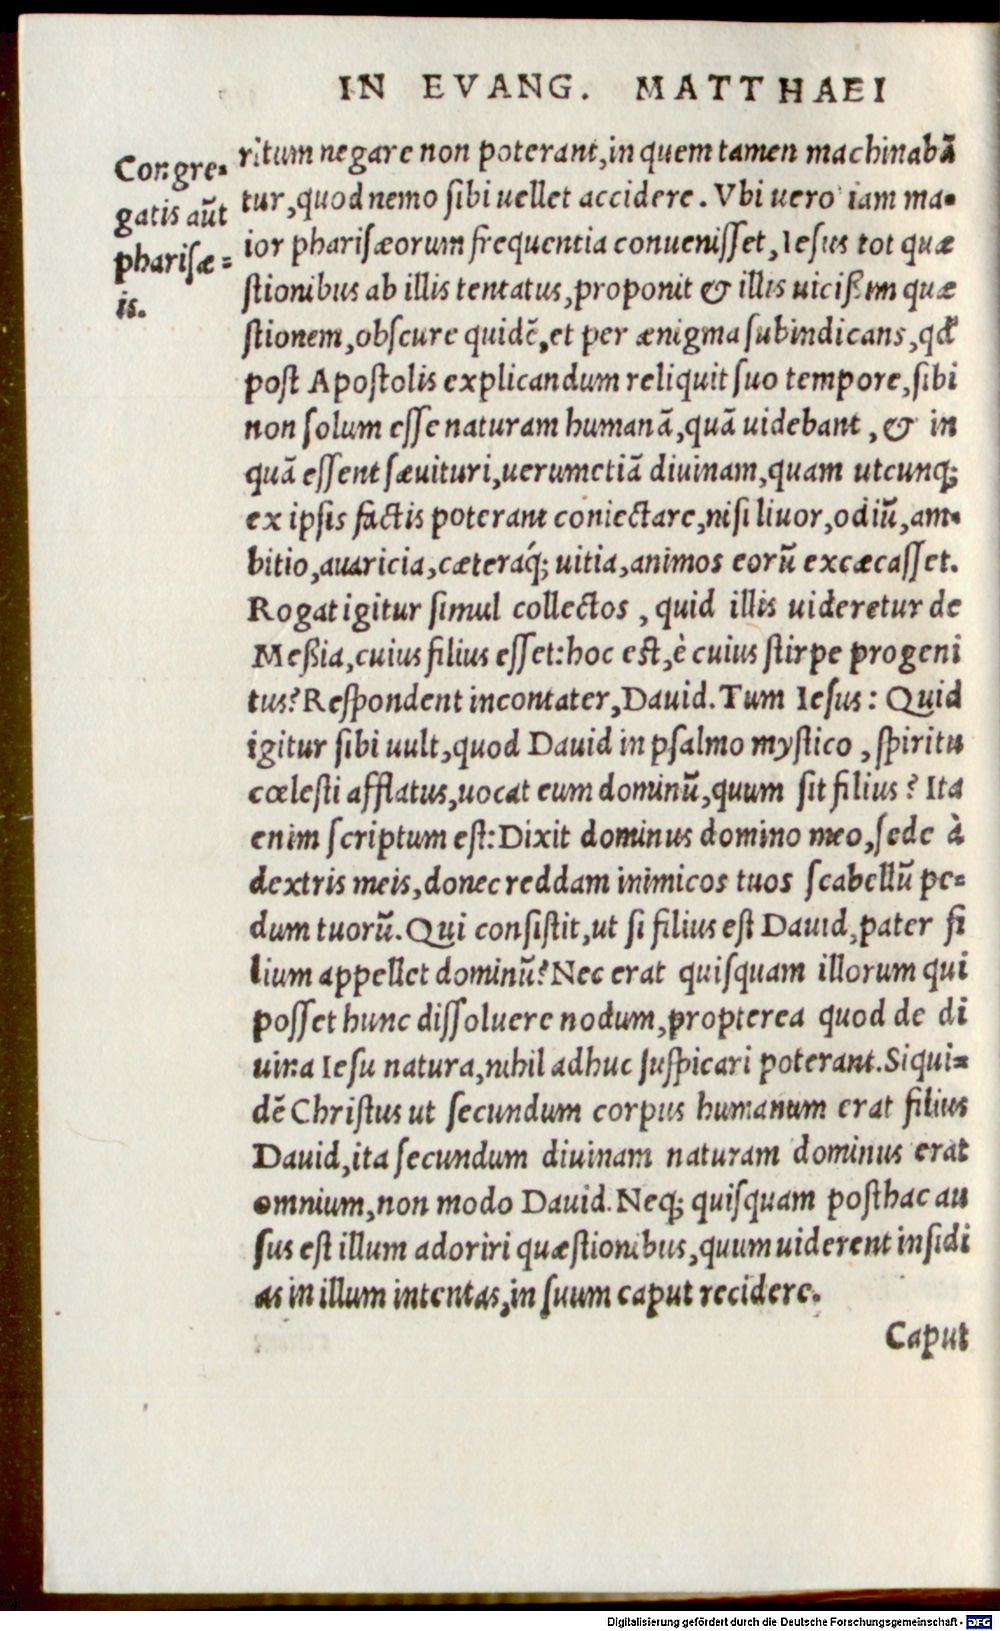 IN EVANG. MATTHAEI
Congre-
gatis aũt
pharisæ-
is.
ritum negare non poterant, in quem tamen machinabã
tur, quod nemo sibi uellet accidere. Vbi uero iam ma-
ior pharisæorum frequentia conuenisset, Iesus tot quæ
stionibus ab illis tentatus, proponit & illis uicißim quæ
stionem, obscure quidẽ, et per ænigma subindicans, qđ
post Apostolis explicandum reliquit suo tempore, sibi
non solum esse naturam humanã, quã uidebant, & in
quã essent sæuituri, uerumetiã diuinam, quam utcunq;
ex ipsis factis poterant coniectare, nisi liuor, odiũ, am-
bitio, auaricia, cæteráq; uitia, animos eorũ excæcasset.
Rogat igitur simul collectos, quid illis uideretur de
Meßia, cuius filius esset: hoc est, è cuius stirpe progeni
tus? Respondent incontater, Dauid. Tum Iesus: Quid
igitur sibi uult, quod Dauid in psalmo mystico, spiritu
cœlesti afflatus, uocat eum dominũ, quum sit filius? Ita
enim scriptum est: Dixit dominus domino meo, sede à
dextris meis, donec reddam inimicos tuos scabellũ pe-
dum tuorũ. Qui consistit, ut si filius est Dauid, pater fi
lium appellet dominũ? Nec erat quisquam illorum qui
posset hunc dissoluere nodum, propterea quod de di
uina Iesu natura, nihil adhuc suspicari poterant. Siqui-
dẽ Christus ut secundum corpus humanum erat filius
Dauid, ita secundum diuinam naturam dominus erat
omnium, non modo Dauid. Neq; quisquam posthac au
sus est illum adoriri quæstionibus, quum uiderent insidi
as in illum intentas, in suum caput recidere.
Caput
Digitalisierung gefördert durch die Deutsche Forschungsgemeinschaft - DFG